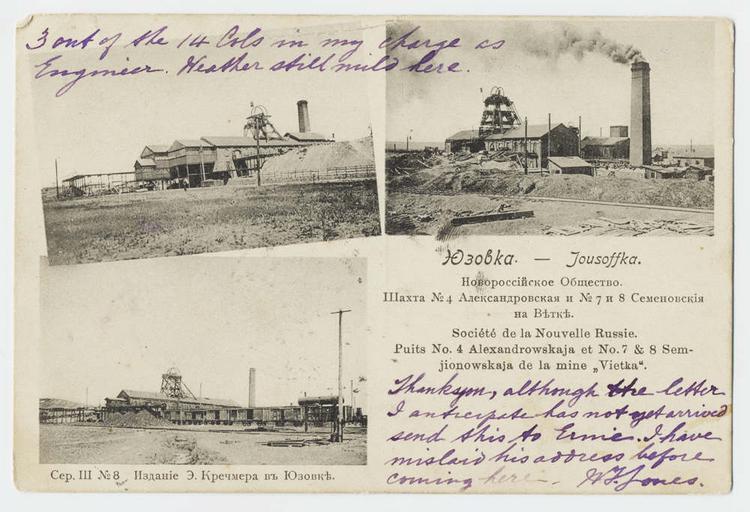 3 out of the 14 Cols in my charge as
Engineer. Weather still mild here.
Юзовка. — Jousoffka.
Новороссійское Общество.
Шахта №4 Александровская и №7 и 8 Семеновскія
на Вѣткѣ.
Société de la Nouvelle Russie.
Puits No. 4 Alexandrowskaja et No. 7 & 8 Sem-
jionowskaja de la mine „Vietka“.
Thanksyou, although the letter
I anticipate has not yet arrived
send this to Ernie. I have
mislaid his address before
coming here. Jones.
Сер. III №8 Изданіе Э. Кречмера въ Юзовкѣ.